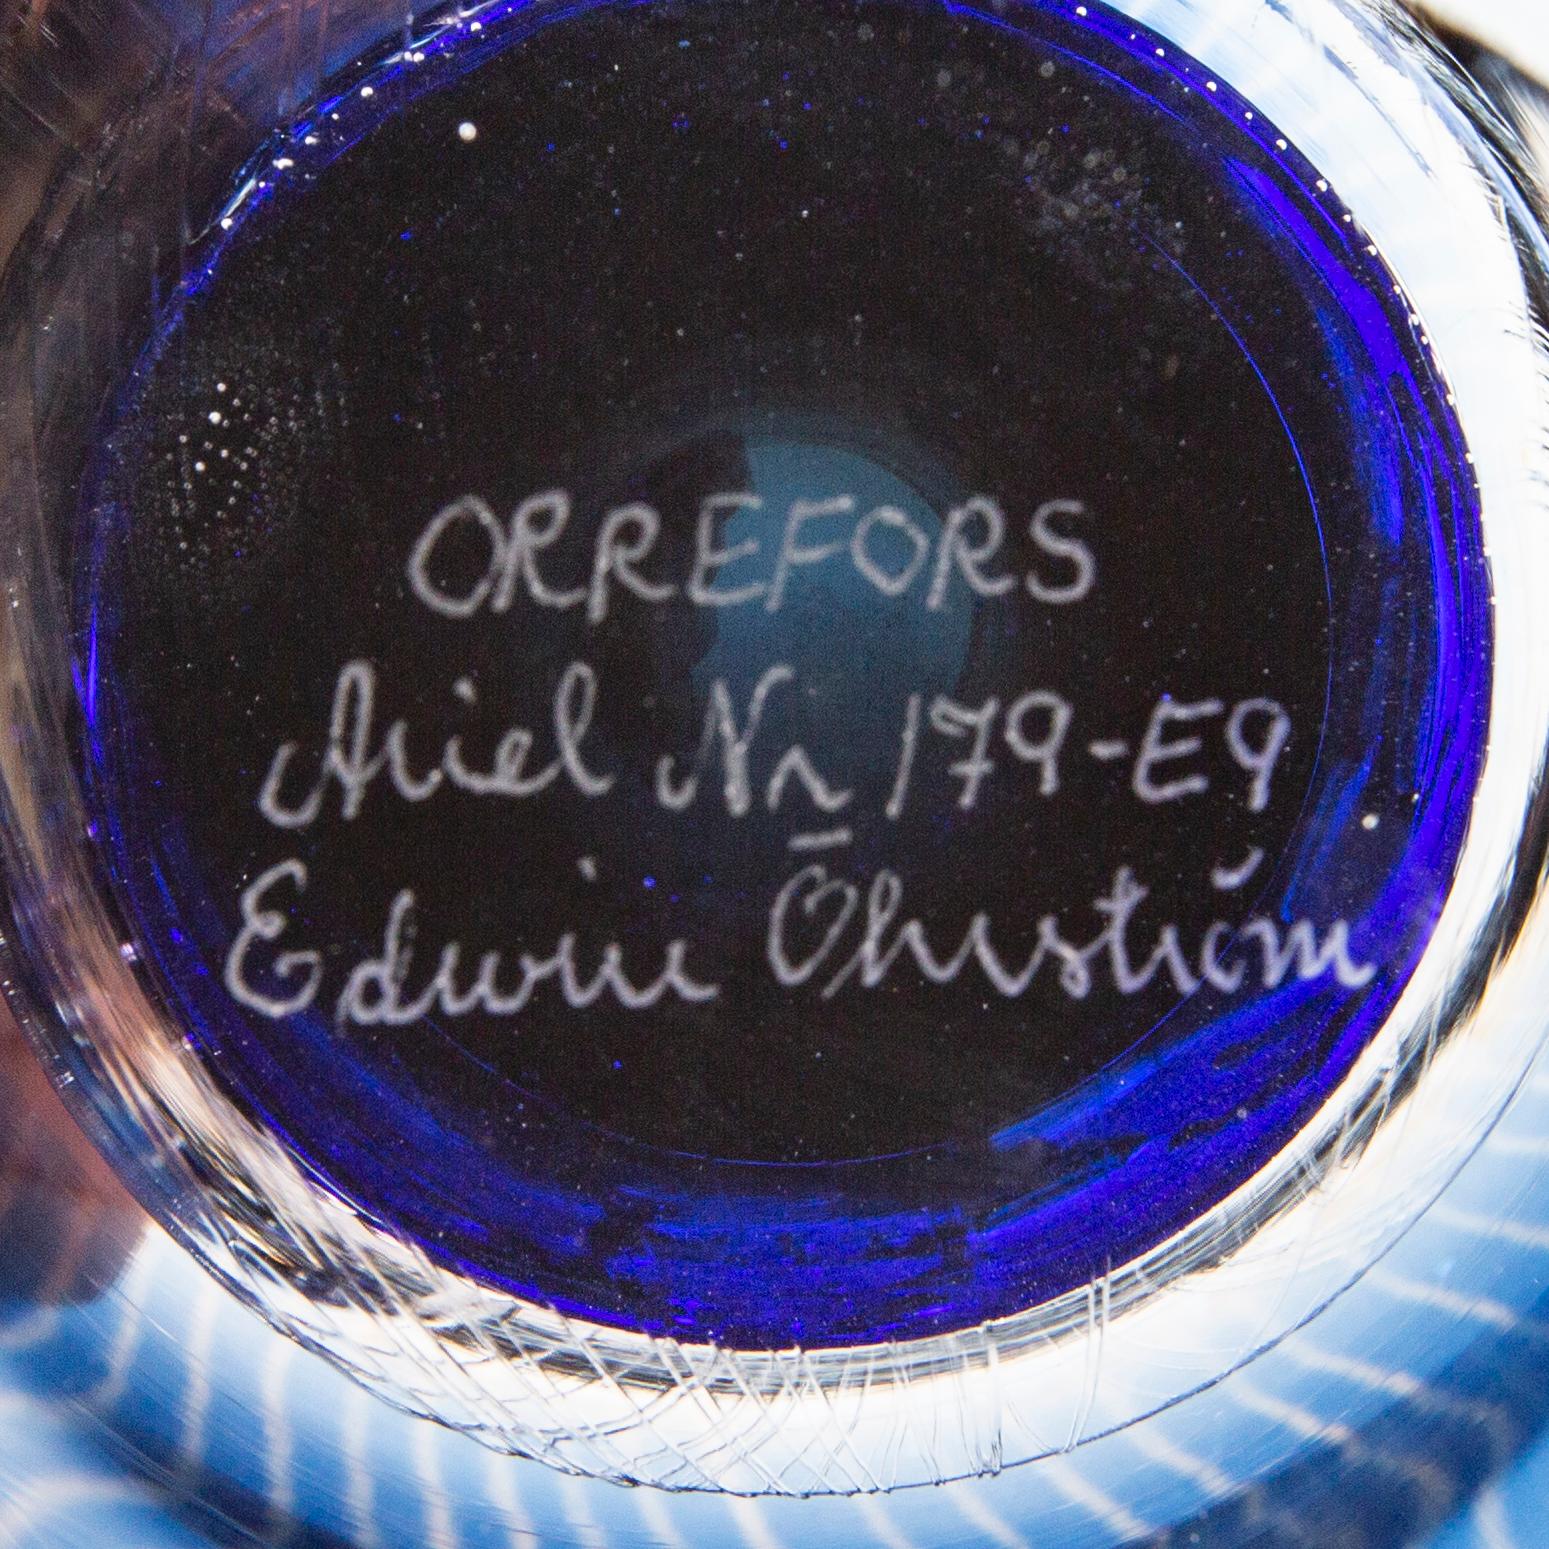 ORREFORS
Ariel Nr 179-E9
Edwin Öhrström